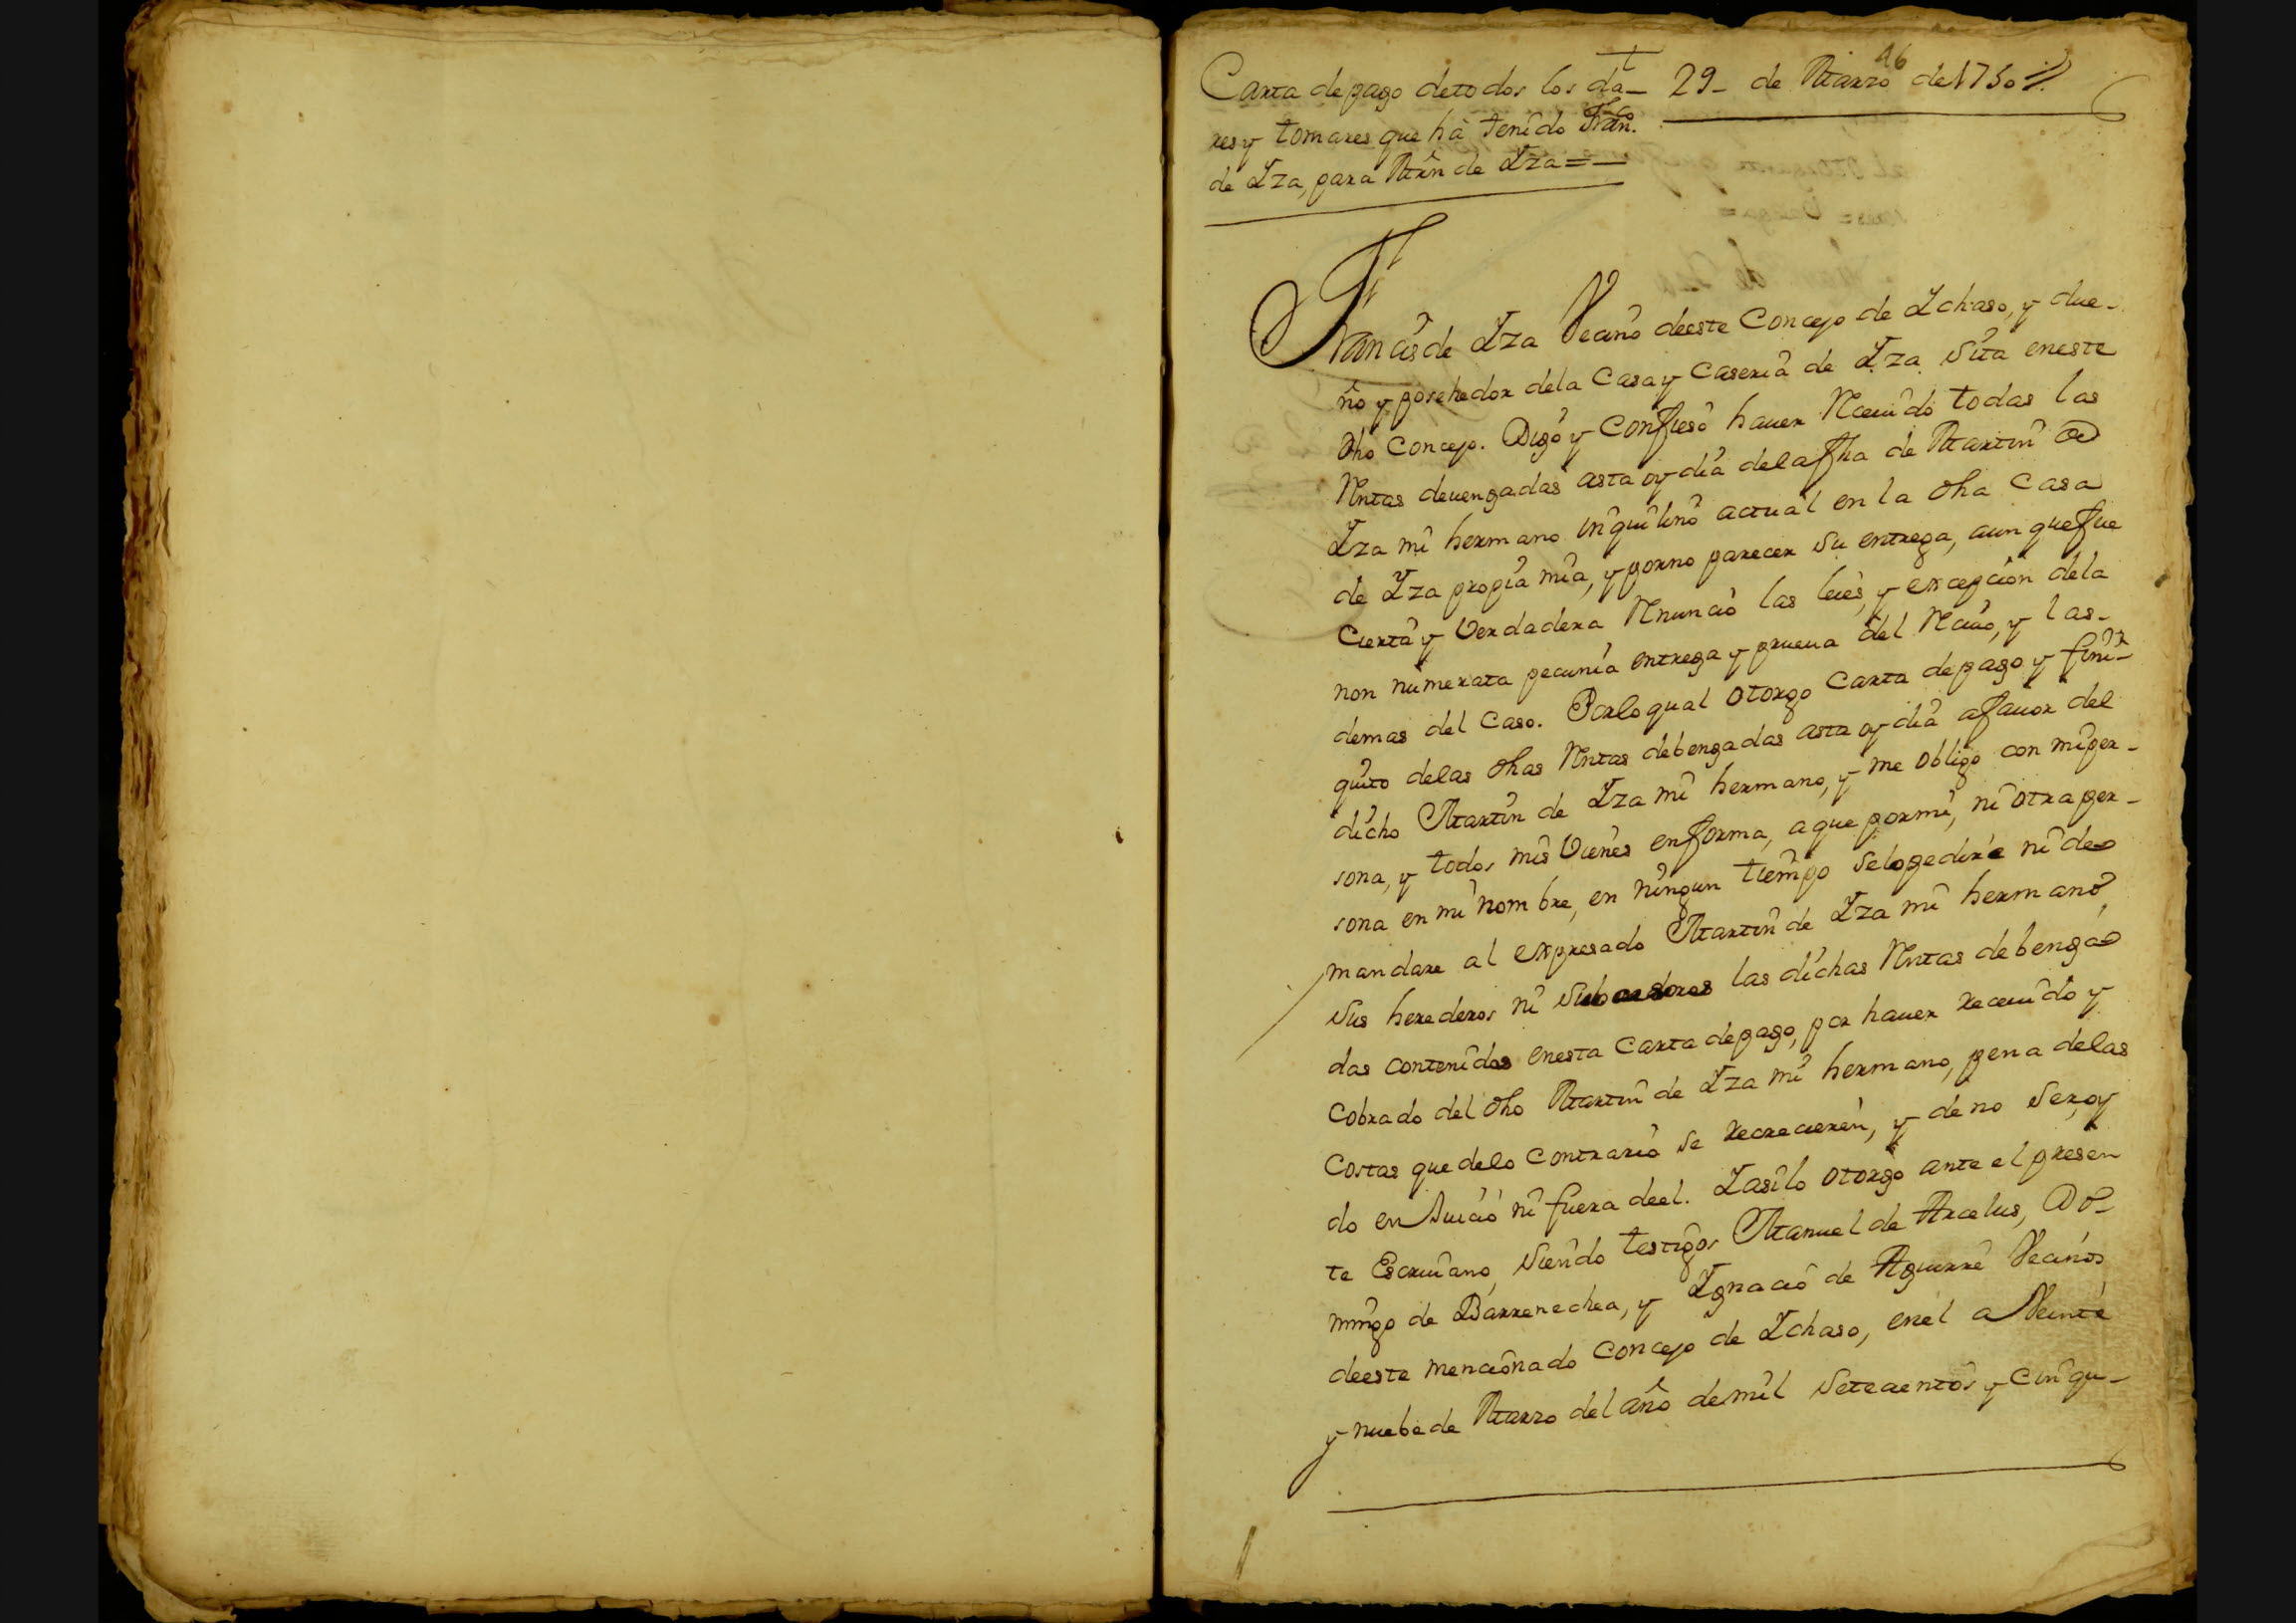 46
Carta de pago de todos los da- 29- de Marzo de 1750 //.
res y tomares que hà tenido Franco.
de Yza, para Mrn de Yza = —
Francis de Yza Vecino deeste Concejo de Ychaso, y due-
ño y posehedor dela Casa y Caseria de Yza sita eneste
dho Concejo. Digo y Confieso hauer Rceuido todas las
Rntas deuengadas asta oy dia dela fha de Martin de
Yza mi hermano inquilino actual en la dha Casa
de Yza propia mia, y porno parecer su entrega, aunque fue
Cierta y Verdadera Rnuncio las leies, y excepcion dela
non numerata pecunia entrega y prueua del Rciuo, y las-
demas del Caso. Porloqual otorgo Carta depago y fini-
quito delas dhas Rntas debengadas asta oy dia afauor del
dicho Martin de Yza mi hermano, y me obligo con miper-
sona, y todos mis Vienes enforma, a que pormi, ni otra per-
sona en mi nombre, en ningun tiempo selopedire ni de
mandare al expresado Martin de Yza mi hermano,
sus herederos ni subcesores las dichas Rntas debenga
das contenidas enesta Carta depago, por hauer receuido y
Cobrado del dho Martin de Yza mi hermano, pena delas
Costas que delo Contrario se recrecieren, y de no ser, oy
do en Juicio ni fuera deel. Yasilo otorgo ante el presen
te Escriuano, siendo testigos Manuel de Arcelus, Do-
mingo de Barrenechea, y Ygnacio de Aguirre Vecinos
deeste mencionado Concejo de Ychaso, enel a Veinte
y nuebe de Marzo del año demil setecientos y Cinqu-